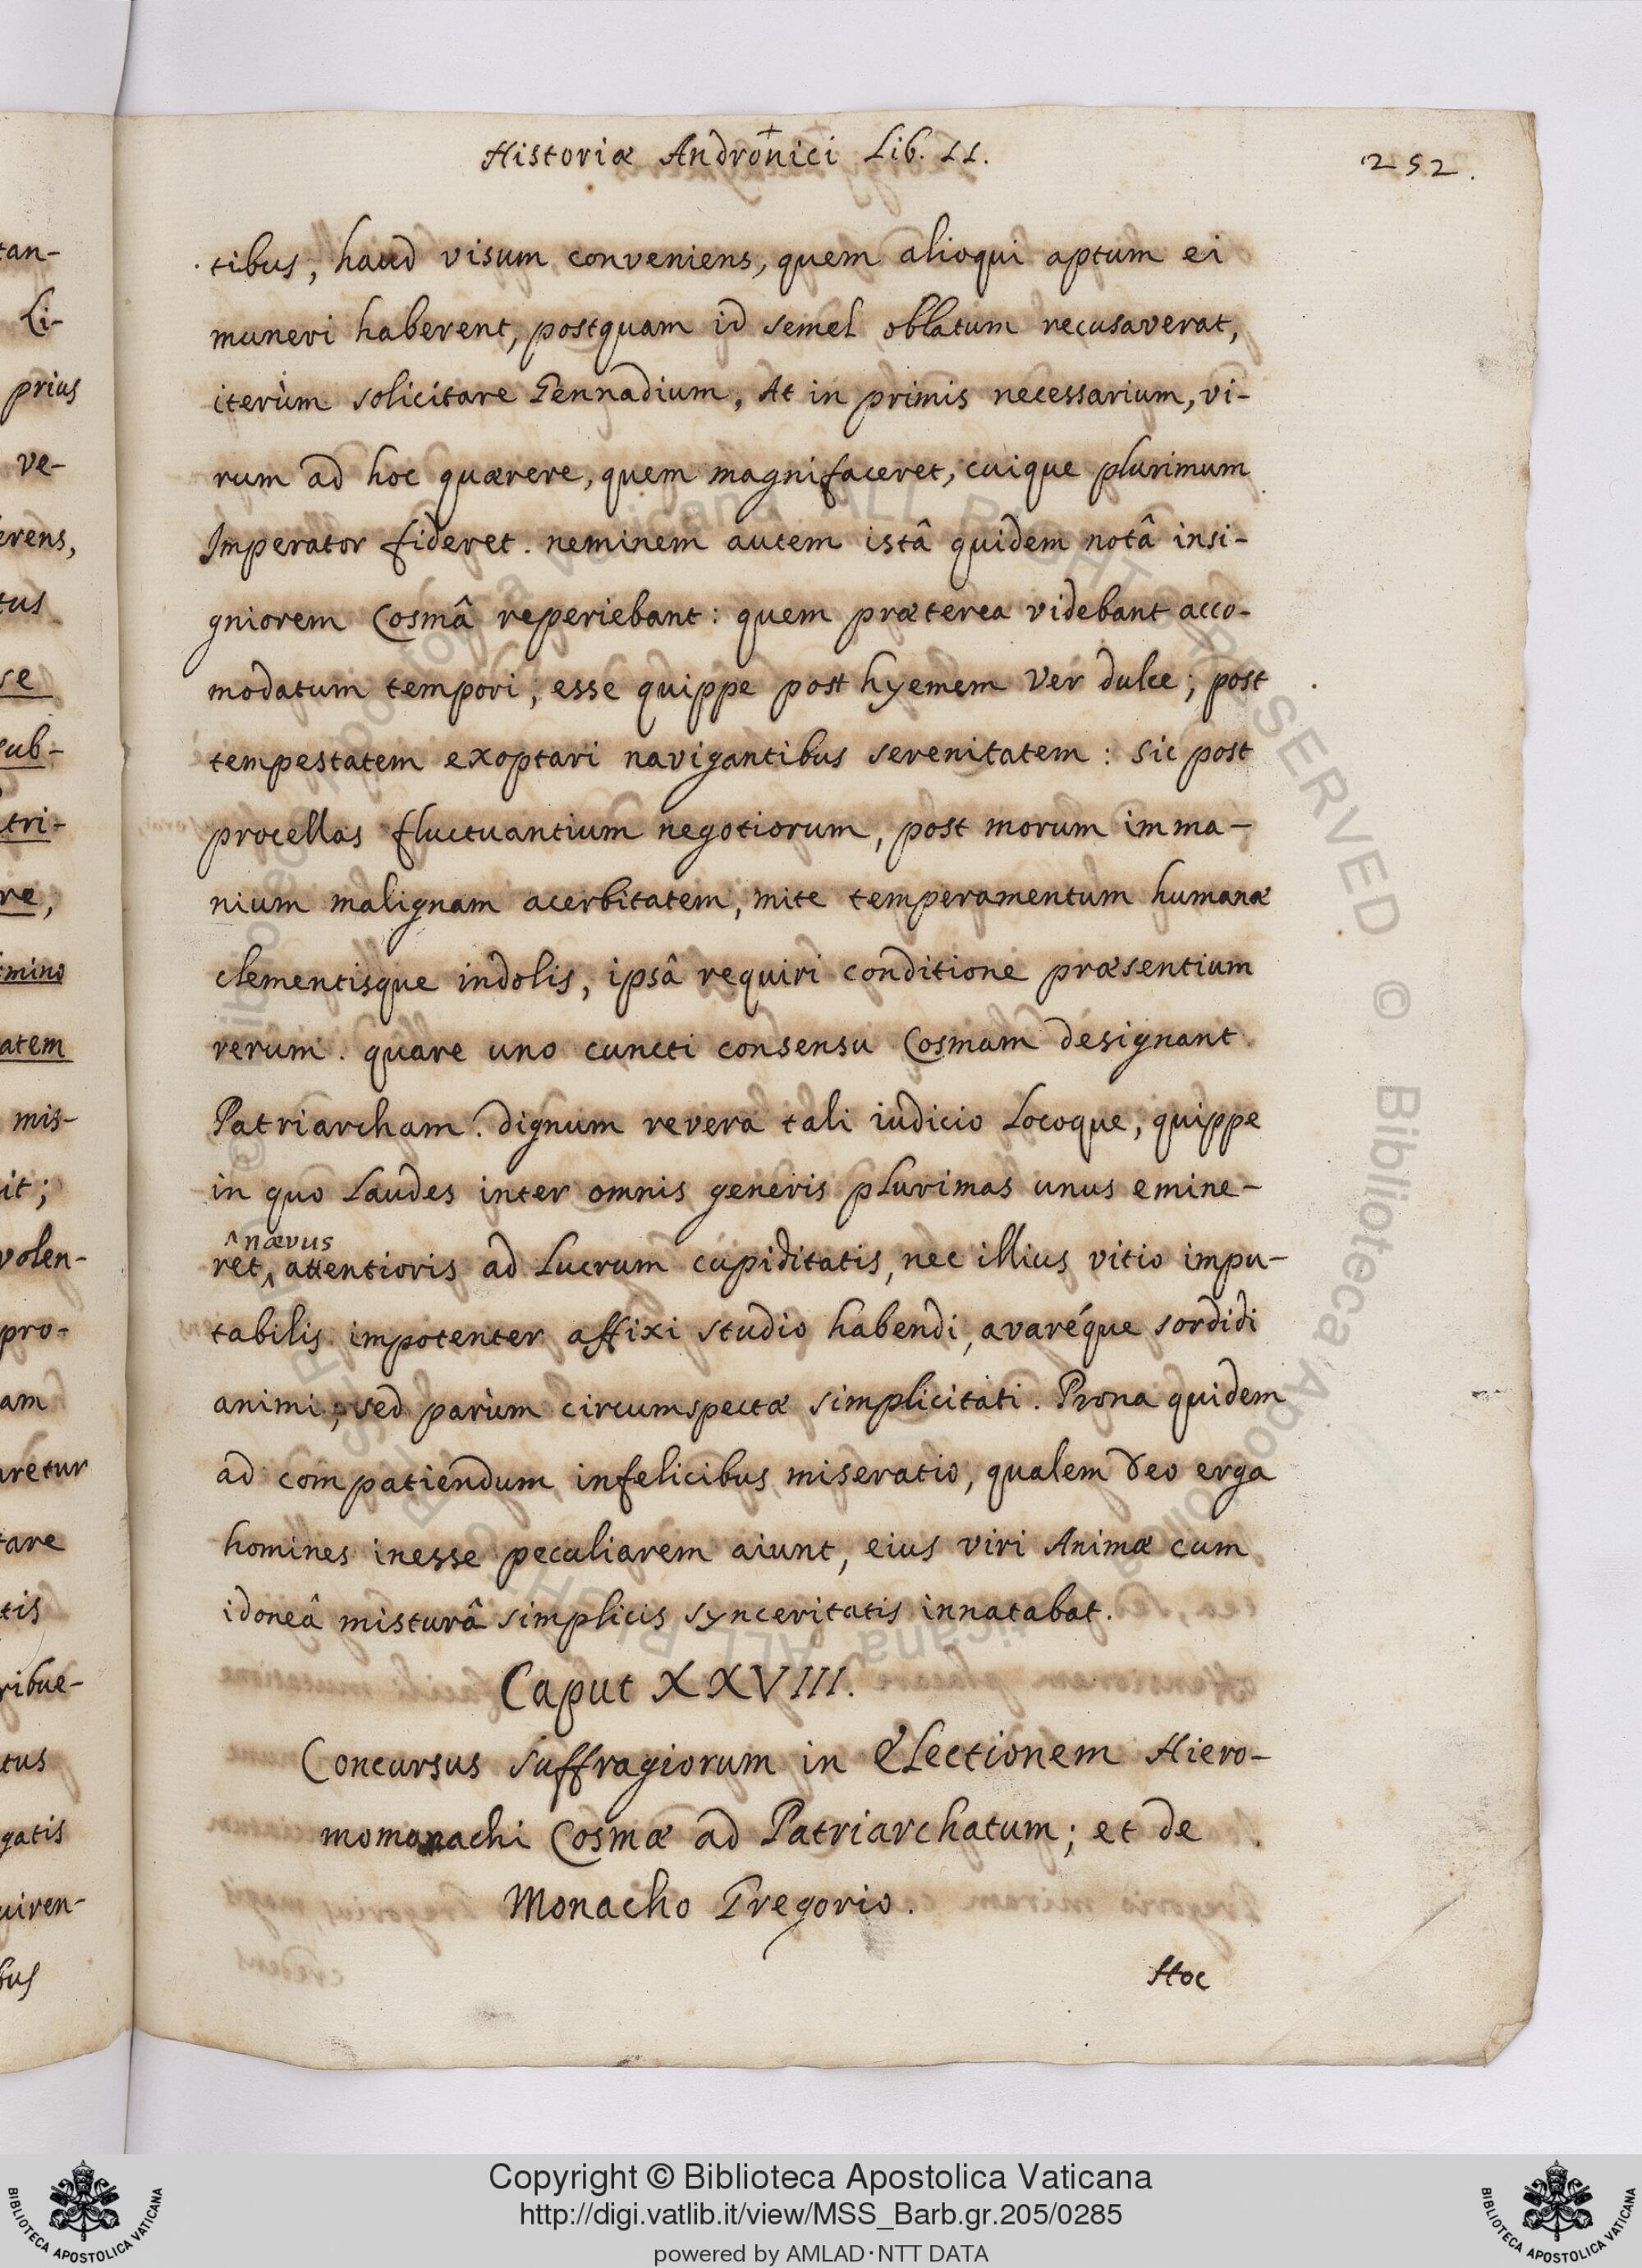 Historiæ Andronici Lib. II.
252.
tibus, haud visum conveniens, quem alioqui aptum ei
muneri haberent, postquam id semel oblatum recusaverat,
iterùm solicitare Gennadium, At in primis necessarium, vi-
rum ad hoc quærere, quem magnifaceret, cuique plurimum
Imperator fideret. neminem autem istâ quidem notâ insi-
gniorem Cosmâ reperiebant: quem præterea videbant acco-
modatum tempori, esse quippe post hyemem Ver dulce; post
tempestatem exoptari navigantibus serenitatem: sic post
procellas fluctuantium negotiorum, post morum imma-
nium malignam acerbitatem, mite temperamentum humanæ
clementisque indolis, ipsâ requiri conditione præsentium
rerum. quare uno cuncti consensu Cosmam designant
Patriarcham. dignum reverà tali iudicio Locoque, quippe
in quo Laudes inter omnis generis plurimas unus emine-
^ nævus
ret, ^ attentioris ad Lucrum cupiditatis, nec illius vitio impu-
tabilis impotenter affixi studio habendi, avaréque sordidi
animi, sed parùm circumspectæ simplicitati. Prona quidem
ad compatiendum infelicibus miseratio, qualem Deo erga
homines inesse peculiarem aiunt, eius viri Animæ cum
idoneâ misturâ simplicis synceritatis innatabat.
Caput XXVIII.
Concursus suffragiorum in Electionem Hiero-
momonachi Cosmæ ad Patriarchatum; et de
Monacho Gregorio.
Hoc
tan-
Li-
prius
ve-
erens,
tus
re
sub-
tri-
re,
mino
atem
mis-
it;
volen-
pro-
am
aretur
tare
tis
ribue-
tus
gatis
uiren-
bus
© Biblioteca Apostolica Vaticana ALL RIGHTS RESERVED
Copyright © Biblioteca Apostolica Vaticana
http://digi.vatlib.it/view/MSS_Barb.gr.205/0285
powered by AMLAD·NTT DATA
BIBLIOTECA APOSTOLICA VATICANA
BIBLIOTECA APOSTOLICA VATICANA